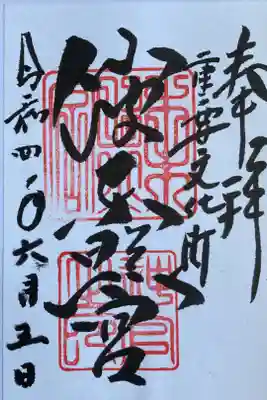 奉拝
重要文化財
仙波東照宮
令和四年六月五日